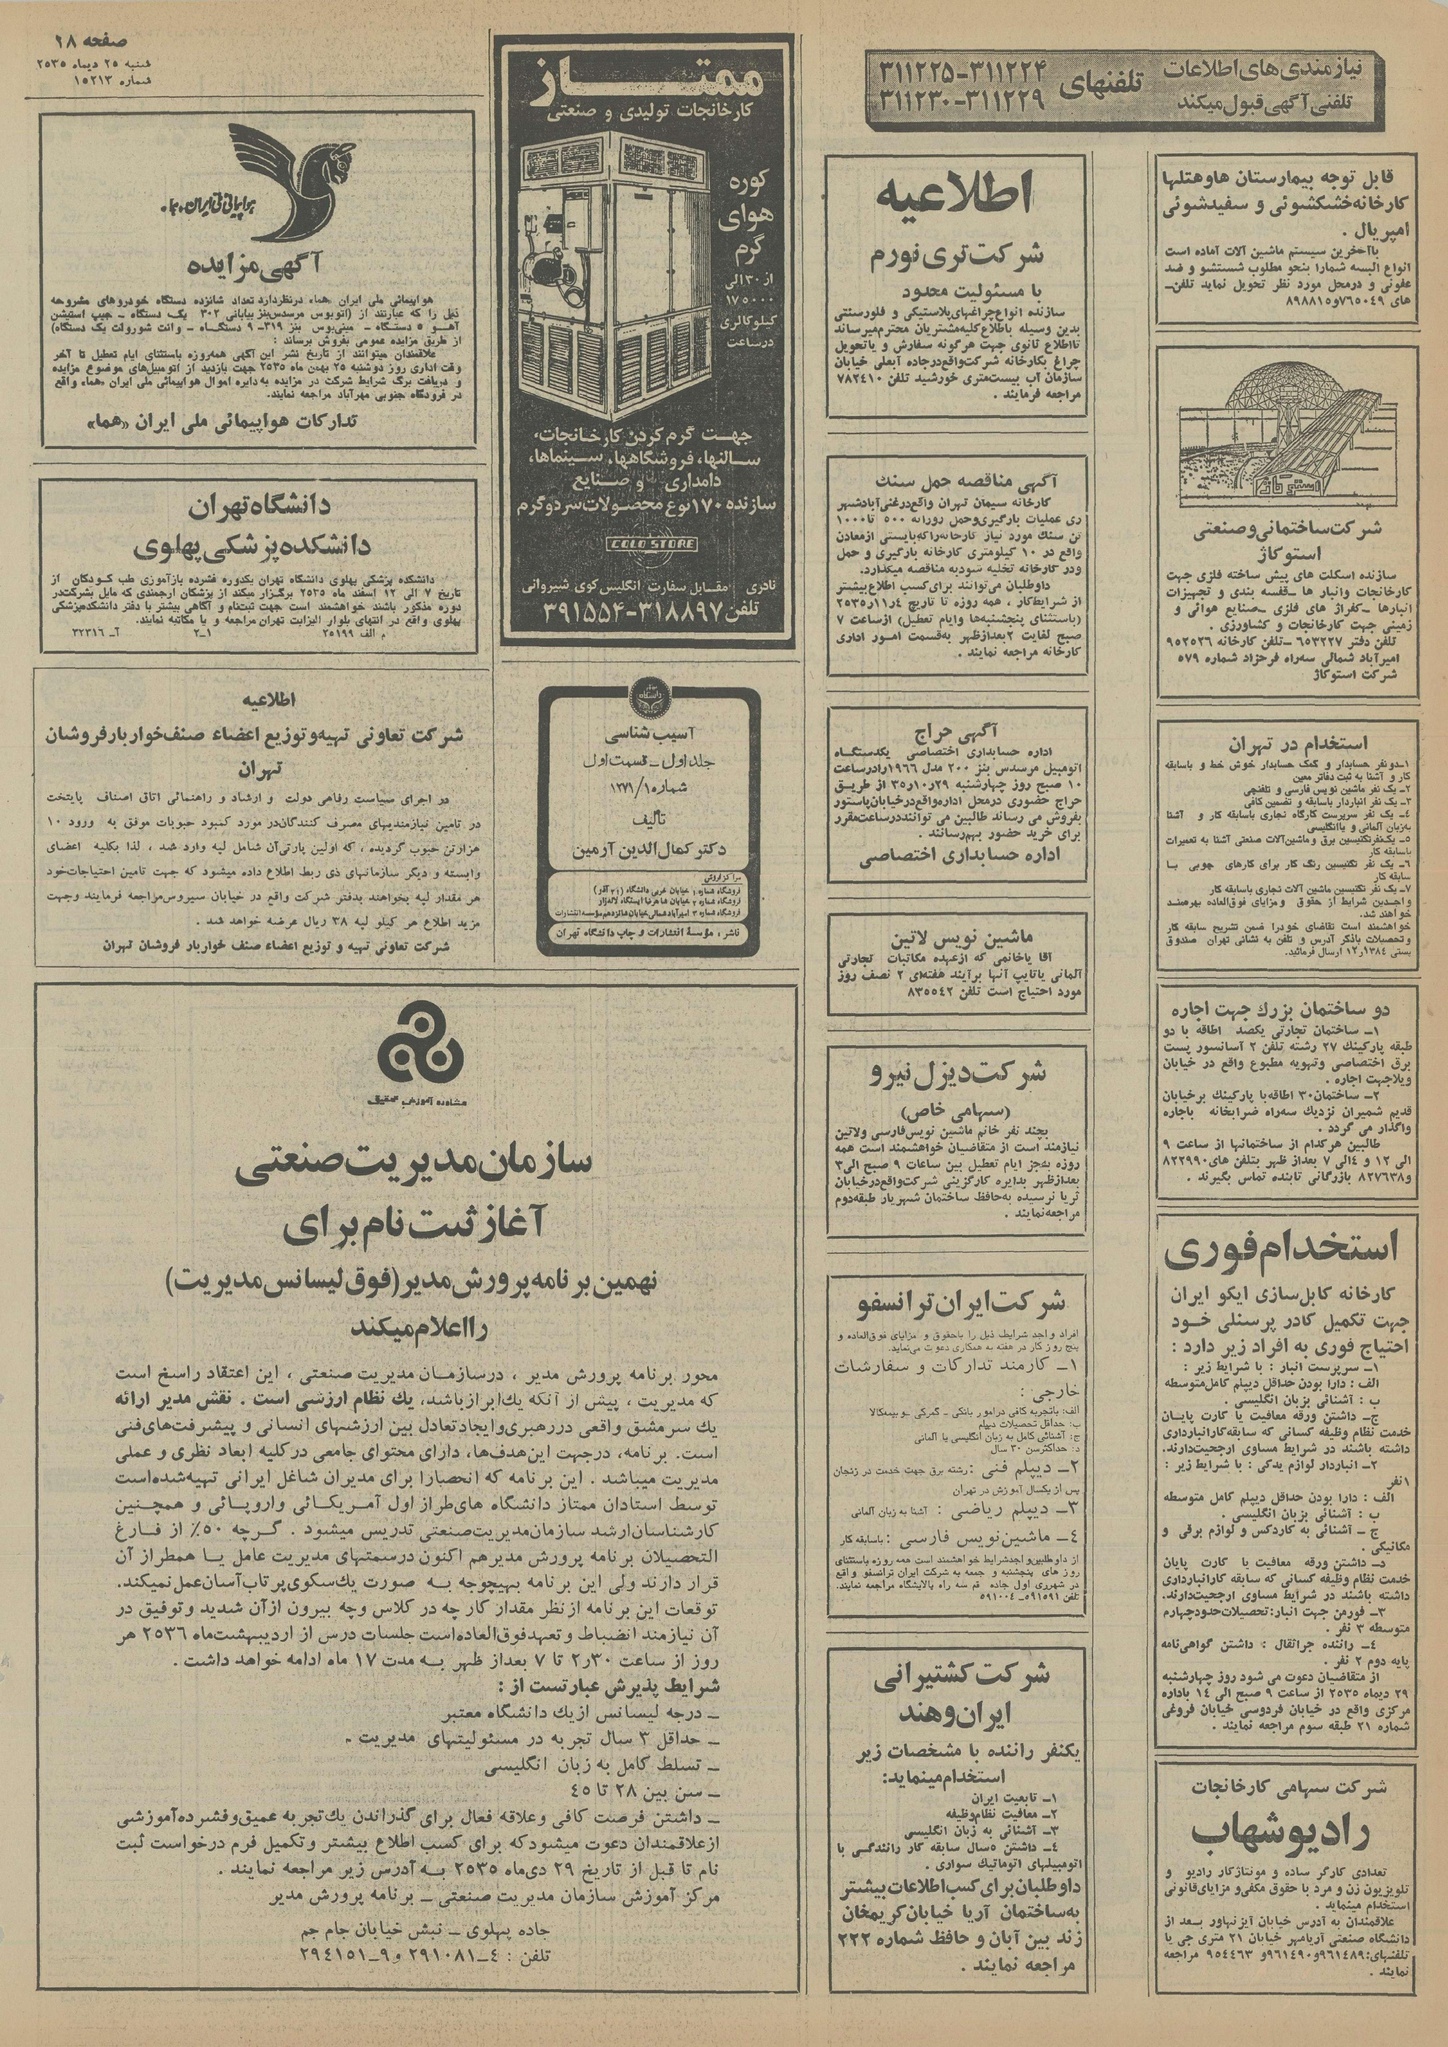 صفحه ۲۸
شنبه ۲۵ دیماه ۲۵۳۵
شماره ۱۵۲۱۳
نیازمندی های اطلاعات
تلفنی آگهی قبول میکند
تلفنهای
۳۱۱۲۲۴-۳۱۱۲۲۵
۳۱۱۲۲۹-۳۱۱۲۳۰
قابل توجه بیمارستان هاوهتلها
کارخانه خشکشوئی و سفیدشوئی
امپریال .
باآخرین سیستم ماشین آلات آماده است
انواع البسه شمارا بنحو مطلوب شستشو و ضد
عفونی و درمحل مورد نظر تحویل نماید تلفن-
های ۷۶۵۰۴۹و۸۹۸۸۱۵
استوکاژ
شرکت ساختمانی وصنعتی
استوکاژ
سازنده اسکلت های پیش ساخته فلزی جهت
کارخانجات وانبار ها -قفسه بندی و تجهیزات
انبارها -کفراژ های فلزی -صنایع هوائی و
زمینی جهت کارخانجات و کشاورزی .
تلفن دفتر ۶۵۳۲۲۷ -تلفن کارخانه ۹۵۲۵۲۶
امیرآباد شمالی سه راه فرحزاد شماره ۵۷۹
شرکت استوکاژ
استخدام در تهران
۱-دونفر حسابدار و کمک حسابدار خوش خط و باسابقه
کار و آشنا به ثبت دفاتر معین
۲-یک نفر ماشین نویس فارسی و تلفنچی
۳-یک نفر انباردار باسابقه و تضمین کافی
۴- یک نفر سرپرست کارگاه نجاری باسابقه کار و آشنا
به زبان آلمانی و یاانگلیسی
۵- یک نفر تکنیسین برق و ماشین آلات صنعتی آشنا به تعمیرات
باسابقه کار
۶- یک نفر تکنیسین رنگ کار برای کارهای چوبی با
سابقه کار
۷-یک نفر تکنیسین ماشین آلات نجاری باسابقه کار
واجدین شرایط از حقوق و مزایای فوق العاده بهرمند
خواهند شد.
خواهشمند است تقاضای خودرا ضمن تشریح سابقه کار
وتحصیلات باذکر آدرس و تلفن به نشانی تهران صندوق
پستی ۱۲٫۱۳۸۴ ارسال فرمائید.
دو ساختمان بزرگ جهت اجاره
۱- ساختمان تجارتی یکصد اطاقه با دو
طبقه پارکینک ۲۷ رشته تلفن ۲ آسانسور پست
برق اختصاصی وتهویه مطبوع واقع در خیابان
ویلاجهت اجاره .
۲- ساختمان۳۰ اطاقه با پارکینک برخیابان
قدیم شمیران نزدیک سه راه ضرابخانه باجاره
واگذار می گردد .
طالبین هرکدام از ساختمانها از ساعت ۹
الی ۱۲ و ۴الی ۷ بعداز ظهر بتلفن های۸۲۲۹۹۰
و۸۲۷۶۳۸ بازرگانی تابنده تماس بگیرند .
استخدام فوری
کارخانه کابل سازی ایکو ایران
جهت تکمیل کادر پرسنلی خود
احتیاج فوری به افراد زیر دارد :
۱- سرپرست انبار : با شرایط زیر :
الف : دارا بودن حداقل دیپلم کامل متوسطه
ب : آشنائی بزبان انگلیسی .
ج- داشتن ورقه معافیت یا کارت پایان
خدمت نظام وظیفه کسانی که سابقه کارانبارداری
داشته باشند در شرایط مساوی ارجحیت دارند.
۲- انباردار لوازم یدکی : با شرایط زیر :
۱نفر
الف : دارا بودن حداقل دیپلم کامل متوسطه
ب : آشنائی بزبان انگلیسی .
ج - آشنائی به کاردکس و لوازم برقی و
مکانیکی .
د- داشتن ورقه معافیت یا کارت پایان
خدمت نظام وظیفه کسانی که سابقه کارانبارداری
داشته باشند در شرایط مساوی ارجحیت دارند.
۳- فورمن جهت انبار: تحصیلات حدودچهارم
متوسطه ۳ نفر .
۴- راننده جراثقال : داشتن گواهی نامه
پایه دوم ۲ نفر .
از متقاضیان دعوت می شود روز چهارشنبه
۲۹ دیماه ۲۵۳۵ از ساعت ۹ صبح الی ۱۴ باداره
مرکزی واقع در خیابان فردوسی خیابان فروغی
شماره ۲۱ طبقه سوم مراجعه نمایند .
شرکت سهامی کارخانجات
رادیوشهاب
تعدادی کارگر ساده و مونتاژکار رادیو و
تلویزیون زن و مرد با حقوق مکفی و مزایای قانونی
استخدام مینماید .
علاقمندان به آدرس خیابان آیزنهاور بعد از
دانشگاه صنعتی آریامهر خیابان ۲۱ متری جی یا
تلفنهای:۹۶۱۴۸۹و۹۶۱۴۹۰و ۹۵۴۴۶۳ مراجعه
نمایند .
اطلاعیه
شرکت تری نورم
با مسئولیت محدود
سازنده انواع چراغهای پلاستیکی و فلورسنتی
بدین وسیله باطلاع کلیه مشتریان محترم میرساند
تااطلاع ثانوی جهت هرگونه سفارش و یاتحویل
چراغ بکارخانه شرکت واقع درجاده آبعلی خیابان
سازمان آب بیست متری خورشید تلفن ۷۸۲۴۱۰
مراجعه فرمایند .
آگهی مناقصه حمل سنگ
کارخانه سیمان تهران واقع درغنی آبادشهر
ری عملیات بارگیری وحمل روزانه ۵۰۰ تا۱۰۰۰
تن سنگ مورد نیاز کارخانه راکه بایستی ازمعادن
واقع در ۱۰ کیلومتری کارخانه بارگیری و حمل
ودر کارخانه تخلیه شودبه مناقصه میگذارد.
داوطلبان می توانند برای کسب اطلاع بیشتر
از شرایط کار ، همه روزه تا تاریخ ۴٫۱۱٫۲۵۳۵
(باستثنای پنجشنبه ها وایام تعطیل) ازساعت ۷
صبح لغایت ۲بعدازظهر به قسمت امور اداری
کارخانه مراجعه نمایند .
آگهی حراج
اداره حسابداری اختصاصی یکدستگاه
اتومبیل مرسدس بنز ۲۰۰ مدل ۱۹۶۶رادرساعت
۱۰ صبح روز چهارشنبه ۲۹٫۱۰٫۳۵ از طریق
حراج حضوری درمحل اداره واقع درخیابان پاستور
بفروش می رساند طالبین می توانند درساعت مقرر
برای خرید حضور بهم رسانند .
اداره حسابداری اختصاصی
ماشین نویس لاتین
آقا یاخانمی که ازعهده مکاتبات تجارتی
آلمانی باتایپ آنها برآیند هفته ای ۲ نصف روز
مورد احتیاج است تلفن ۸۳۵۵۴۲
شرکت دیزل نیرو
(سهامی خاص)
بچند نفر خانم ماشین نویس فارسی ولاتین
نیازمند است از متقاضیان خواهشمند است همه
روزه به جز ایام تعطیل بین ساعات ۹ صبح الی۳
بعدازظهر بدایره کارگزینی شرکت واقع درخیابان
ثریا نرسیده به حافظ ساختمان شهریار طبقه دوم
مراجعه نمایند .
شرکت ایران ترانسفو
افراد واجد شرایط ذیل را باحقوق و مزایای فوق العاده و
پنج روز کار در هفته به همکاری دعوت می نماید.
۱- کارمند تدارکات و سفارشات
خارجی :
الف: باتجربه کافی درامور بانکی - گمرکی -وبیمه کالا
ب: حداقل تحصیلات دیپلم
ج: آشنائی کامل به زبان انگلیسی یا آلمانی
د: حداکثر سن ۳۰ سال
۲- دیپلم فنی : رشته برق جهت خدمت در زنجان
پس از یکسال آموزش در تهران
۳- دیپلم ریاضی : آشنا به زبان آلمانی
۴- ماشین نویس فارسی : باسابقه کار
از داوطلبین واجد شرایط خواهشمند است همه روزه باستثنای
روز های پنجشنبه و جمعه به شرکت ایران ترانسفو واقع
در شهرری اول جاده قم سه راه پالایشگاه مراجعه نمایند.
تلفن ۵۹۱۵۹۱-۵۹۱۰۰۴
شرکت کشتیرانی
ایران وهند
یکنفر راننده با مشخصات زیر
استخدام مینماید:
۱- تابعیت ایران
۲- معافیت نظام وظیفه
۳- آشنائی به زبان انگلیسی
۴- داشتن ۵سال سابقه کار رانندگی با
اتومبیلهای اتوماتیک سواری .
داوطلبان برای کسب اطلاعات بیشتر
به ساختمان آریا خیابان کریمخان
زند بین آبان و حافظ شماره ۲۲۲
مراجعه نمایند .
ممتاز
کارخانجات تولیدی و صنعتی
کوره
هوای
گرم
از ۳۰الی
۱۷۵۰۰۰
کیلوکالری
درساعت
جهت گرم کردن کارخانجات،
سالنها، فروشگاهها، سینماها،
دامداری و صنایع
سازنده ۱۷۰نوع محصولات سردوگرم
COLD STORE
نادری مقابل سفارت انگلیس کوی شیروانی
تلفن ۳۱۸۸۹۷-۳۹۱۵۵۴
آسیب شناسی
جلد اول - قسمت اول
شماره ۱/۱۲۷۱
تألیف
دکتر کمال الدین آرمین
مراکز فروش
فروشگاه شماره ۱ خیابان غربی دانشگاه (۲۱ آذر)
فروشگاه شماره ۲ خیابان شاهرضا ایستگاه لاله زار
فروشگاه شماره ۳ امیرآباد شمالی خیابان شانزدهم مؤسسه انتشارات
ناشر : مؤسسه انتشارات و چاپ دانشگاه تهران
هواپیمائی ملی ایران، هما.
آگهی مزایده
هواپیمائی ملی ایران هماء درنظردارد تعداد شانزده دستگاه خودروهای مشروحه
ذیل را که عبارتند از (اتوبوس مرسدس بنز بیابانی ۳۰۲ یک دستگاه - جیپ استیشن
آهو ۵ دستگاه - مینی بوس بنز ۳۱۹- ۹ دستگاه - وانت شورولت یک دستگاه)
از طریق مزایده عمومی بفروش برساند :
علاقمندان میتوانند از تاریخ نشر این آگهی همه روزه باستثنای ایام تعطیل تا آخر
وقت اداری روز دوشنبه ۲۵ بهمن ماه ۲۵۳۵ جهت بازدید از اتومبیل های موضوع مزایده
و دریافت برگ شرایط شرکت در مزایده به دایره اموال هواپیمائی ملی ایران ،هماء واقع
در فرودگاه جنوبی مهرآباد مراجعه نمایند.
تدارکات هواپیمائی ملی ایران «هما»
دانشگاه تهران
دانشکده پزشکی پهلوی
دانشکده پزشکی پهلوی دانشگاه تهران یکدوره فشرده بازآموزی طب کودکان از
تاریخ ۷ الی ۱۲ اسفند ماه ۲۵۳۵ برگزار میکند از پزشکان ارجمندی که مایل بشرکت در
دوره مذکور باشند خواهشمند است جهت ثبت نام و آگاهی بیشتر با دفتر دانشکده پزشکی
پهلوی واقع در انتهای بلوار الیزابت تهران مراجعه و یا مکاتبه نمایند.
م الف ۲۵۱۹۹ ۱-۲ آ- ۳۲۳۱۶
اطلاعیه
شرکت تعاونی تهیه و توزیع اعضاء صنف خواربارفروشان
تهران
در اجرای سیاست رفاهی دولت و ارشاد و راهنمائی اتاق اصناف پایتخت
در تامین نیازمندیهای مصرف کنندگان در مورد کمبود حبوبات موفق به ورود ۱۰
هزارتن حبوب گردیده ، که اولین پارتی آن شامل لپه وارد شد ، لذا بکلیه اعضای
وابسته و دیگر سازمانهای ذی ربط اطلاع داده میشود که جهت تامین احتیاجات خود
هر مقدار لپه بخواهند بدفتر شرکت واقع در خیابان سیروس مراجعه فرمایند وجهت
مزید اطلاع هر کیلو لپه ۳۸ ریال عرضه خواهد شد .
شرکت تعاونی تهیه و توزیع اعضاء صنف خواربار فروشان تهران
مشاوره آموزش تحقیق
سازمان مدیریت صنعتی
آغاز ثبت نام برای
نهمین برنامه پرورش مدیر (فوق لیسانس مدیریت)
را اعلام میکند
محور برنامه پرورش مدیر ، درسازمان مدیریت صنعتی ، این اعتقاد راسخ است
که مدیریت ، پیش از آنکه یك ابراز باشد، یك نظام ارزشی است . نقش مدیر ارائه
یك سرمشق واقعی دررهبری وایجاد تعادل بین ارزشهای انسانی و پیشرفت های فنی
است. برنامه، درجهت این هدف ها، دارای محتوای جامعی درکلیه ابعاد نظری و عملی
مدیریت میباشد . این برنامه که انحصارا برای مدیران شاغل ایرانی تهیه شده است
توسط استادان ممتاز دانشگاه های طراز اول آمریکائی واروپائی و همچنین
کارشناسان ارشد سازمان مدیریت صنعتی تدریس میشود . گرچه ۵۰٪ از فارغ
التحصیلان برنامه پرورش مدیرهم اکنون درسمتهای مدیریت عامل یا همطراز آن
قرار دارند ولی این برنامه بهیچوجه به صورت یك سکوی پرتاب آسان عمل نمیکند.
توقعات این برنامه از نظر مقدار کار چه در کلاس وچه بیرون ازآن شدید وتوفیق در
آن نیازمند انضباط و تعهد فوق العاده است جلسات درس از اردیبهشت ماه ۲۵۳۶ هر
روز از ساعت ۲٫۳۰ تا ۷ بعداز ظهر به مدت ۱۷ ماه ادامه خواهد داشت .
شرایط پذیرش عبارتست از :
- درجه لیسانس از یك دانشگاه معتبر
- حداقل ۳ سال تجربه در مسئولیتهای مدیریت .
- تسلط کامل به زبان انگلیسی
- سن بین ۲۸ تا ۴۵
- داشتن فرصت کافی وعلاقه فعال برای گذراندن یك تجربه عمیق و فشرده آموزشی
ازعلاقمندان دعوت میشود که برای کسب اطلاع بیشتر وتکمیل فرم درخواست ثبت
نام تا قبل از تاریخ ۲۹ دی ماه ۲۵۳۵ به آدرس زیر مراجعه نمایند .
مرکز آموزش سازمان مدیریت صنعتی - برنامه پرورش مدیر
جاده پهلوی - نبش خیابان جام جم
تلفن : ۴-۲۹۱۰۸۱ و۹-۲۹۴۱۵۱